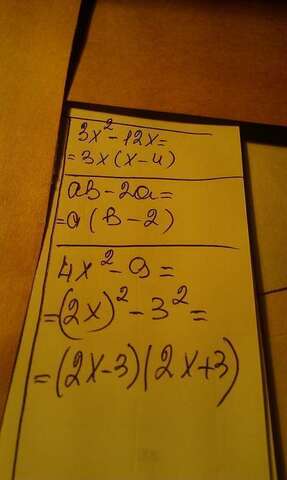 3x² - 12x =
= 3x(x-4)
ab - 2a =
= a(b-2)
4x² - 9 =
= (2x)² - 3² =
= (2x-3)(2x+3)